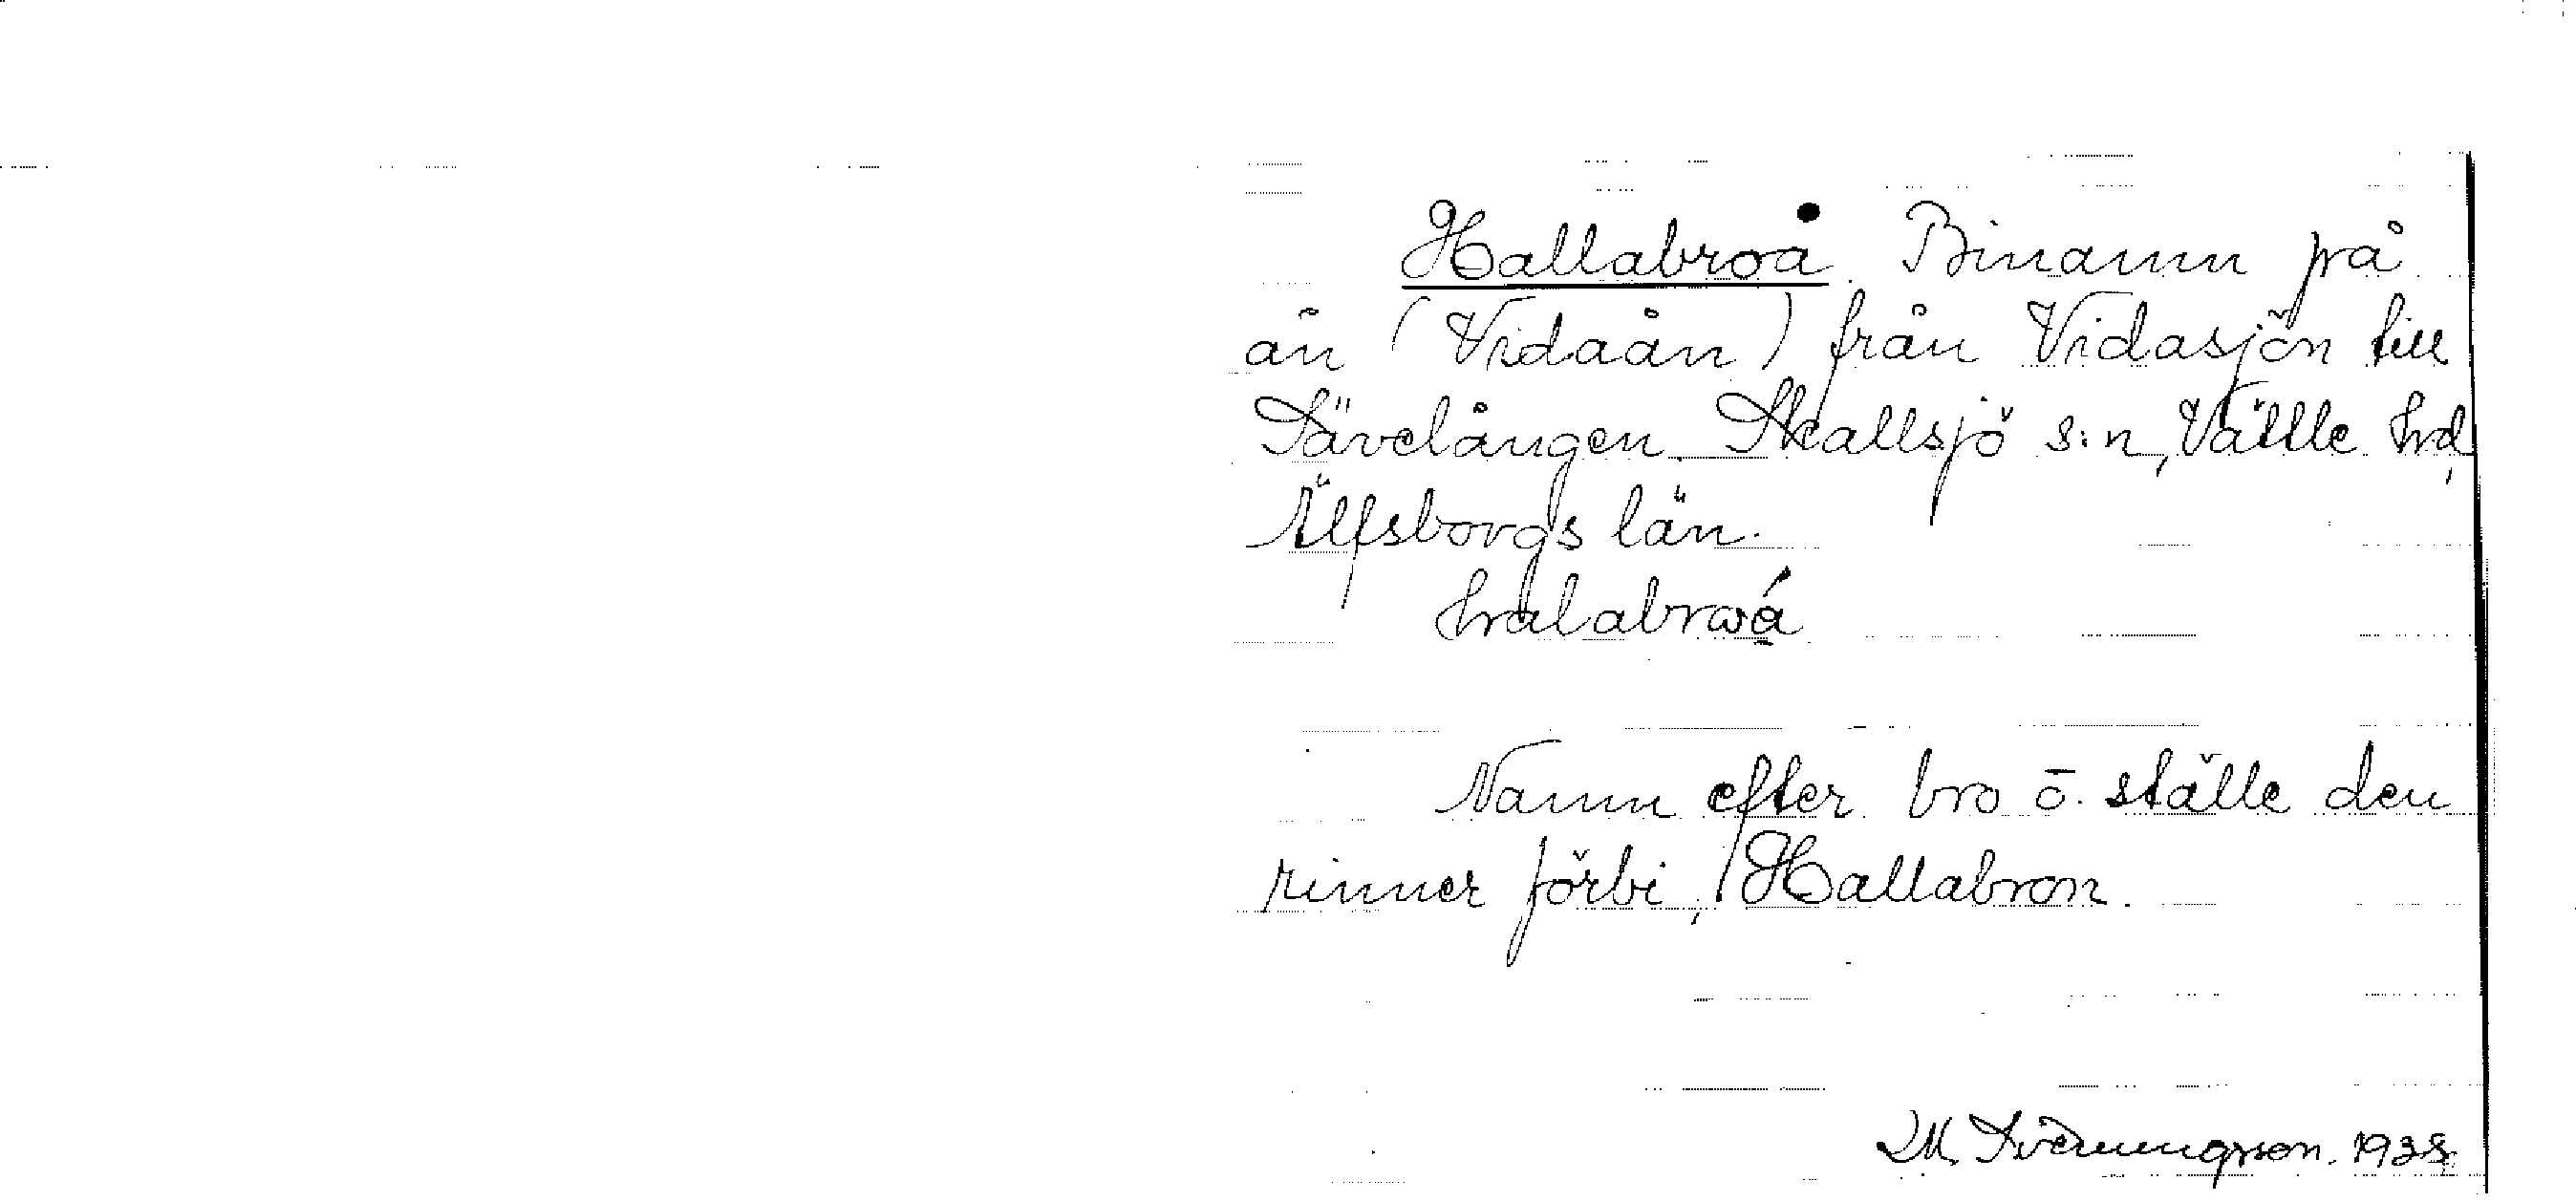 Hallabroå. Binamn på
ån (Vidaån) från Vidasjön till
Sävelången. Skallsjö s:n, Vättle hd,
Älfsborgs län.
Namn efter bro o. ställe den
rinner förbi, Hallabron.
M. 1938